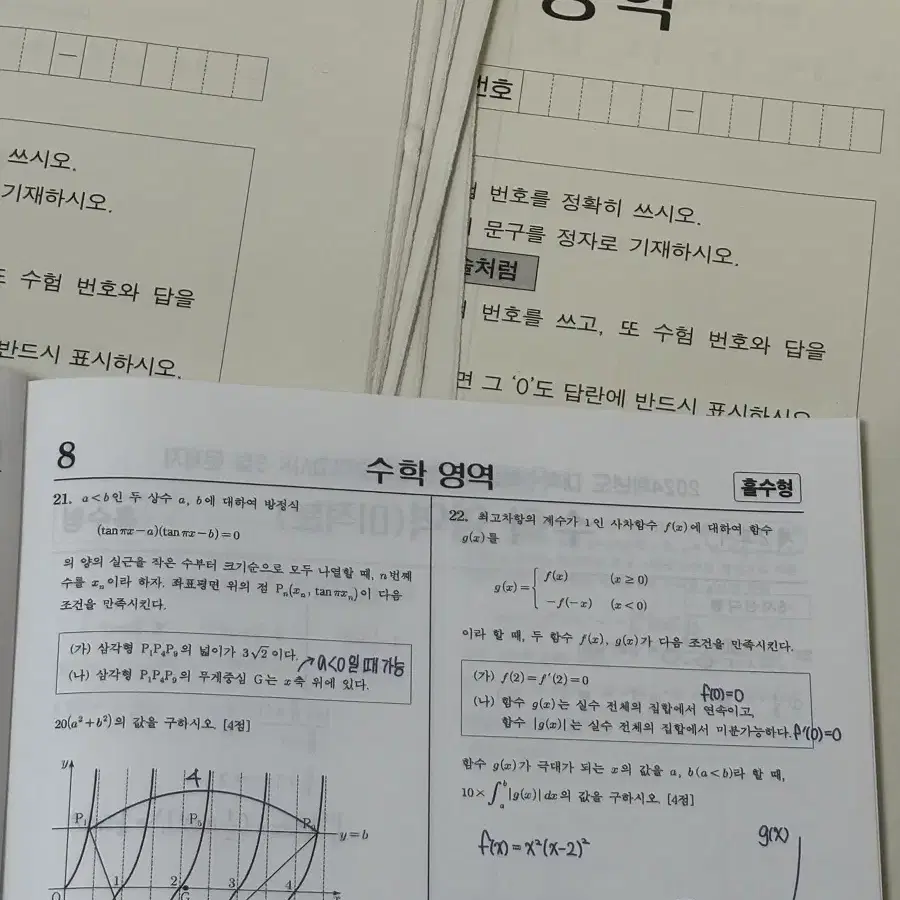 영역
번호
쓰시오.
기재하시오.
수험 번호와 답을
반드시 표시하시오.
번호를 정확히 쓰시오.
문구를 정자로 기재하시오.
번호를 쓰고, 또 수험 번호와 답을
면 그 '0'도 답란에 반드시 표시하시오
8
수학 영역
홀수형
21. a<b인 두 상수 a, b에 대하여 방정식
(tanπx-a)(tanπx-b)=0
의 양의 실근을 작은 수부터 크기순으로 모두 나열할 때, n번째
수를 xₙ이라 하자. 좌표평면 위의 점 Pₙ(xₙ, tanπxₙ)이 다음
조건을 만족시킨다.
(가) 삼각형 P₁P₄P₉의 넓이가 3√2이다.
→ a<0일 때 가능
(나) 삼각형 P₁P₄P₉의 무게중심 G는 x축 위에 있다.
20(a²+b²)의 값을 구하시오. [4점]
y
4
P₁ P₅ P₉ y=b
1 2 3 4
O G x
22. 최고차항의 계수가 1인 사차함수 f(x)에 대하여 함수
g(x)를
g(x)={ f(x) (x≥0)
-f(-x) (x<0)
이라 할 때, 두 함수 f(x), g(x)가 다음 조건을 만족시킨다.
(가) f(2)=f'(2)=0
f(0)=0
(나) 함수 g(x)는 실수 전체의 집합에서 연속이고,
함수 |g(x)|는 실수 전체의 집합에서 미분가능하다. f'(0)=0
함수 g(x)가 극대가 되는 x의 값을 a, b(a<b)라 할 때,
10×∫ₐᵇ|g(x)|dx의 값을 구하시오. [4점]
f(x)=x²(x-2)²
g(x)